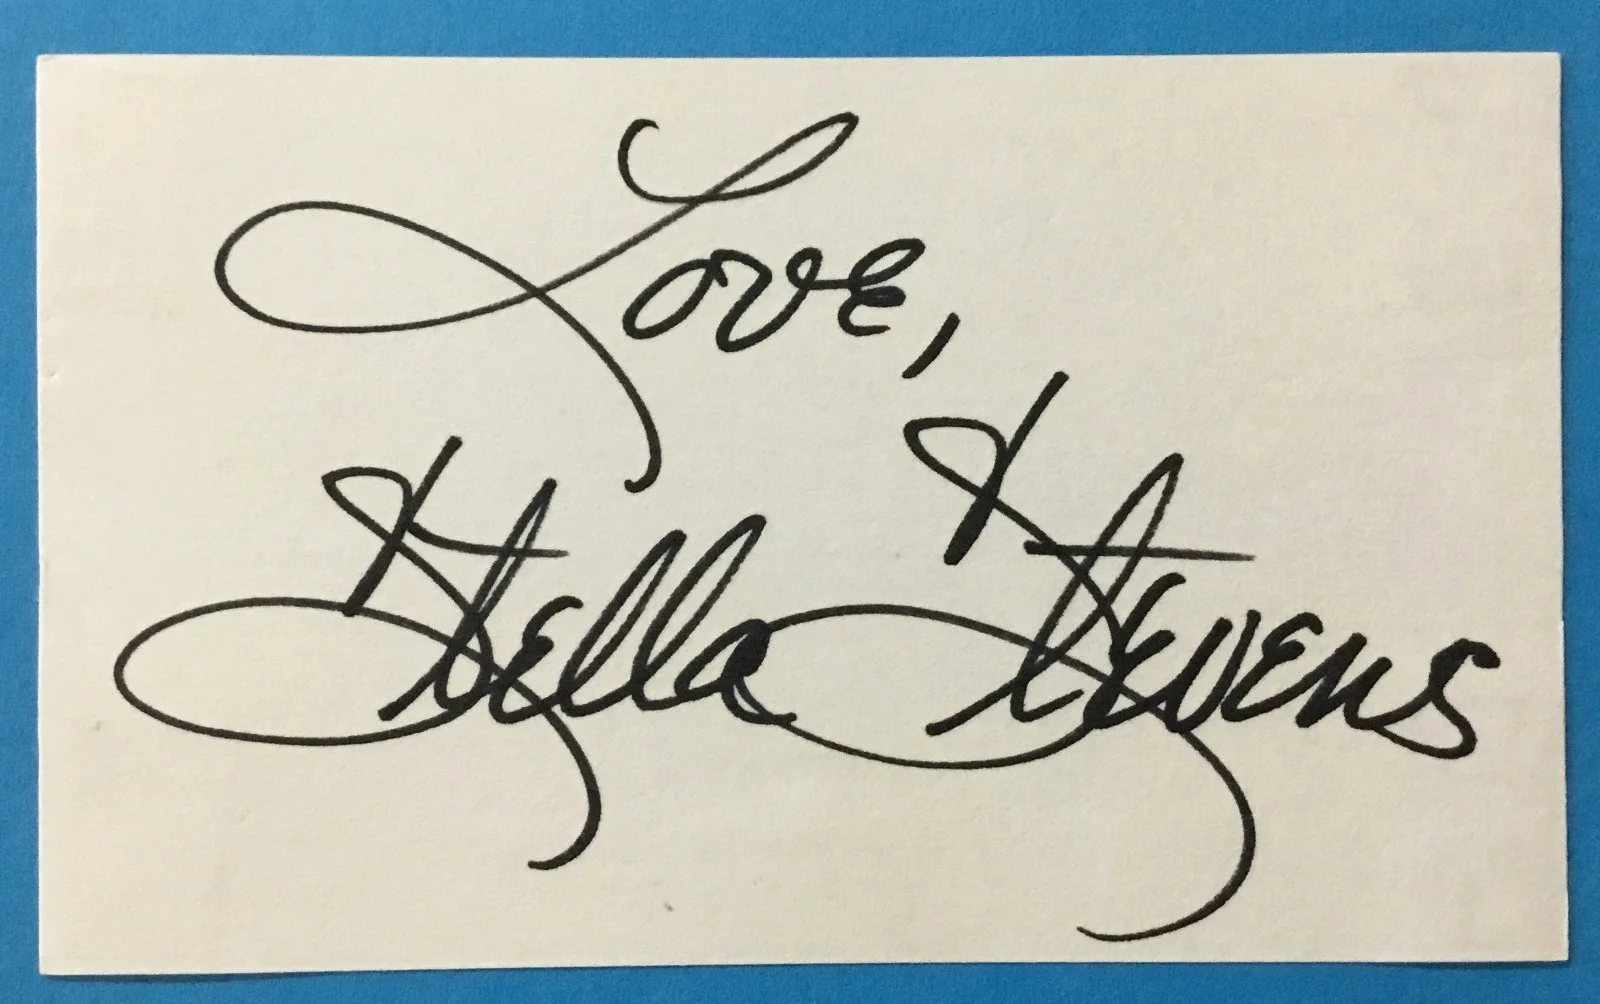 Love,
Stella Stevens